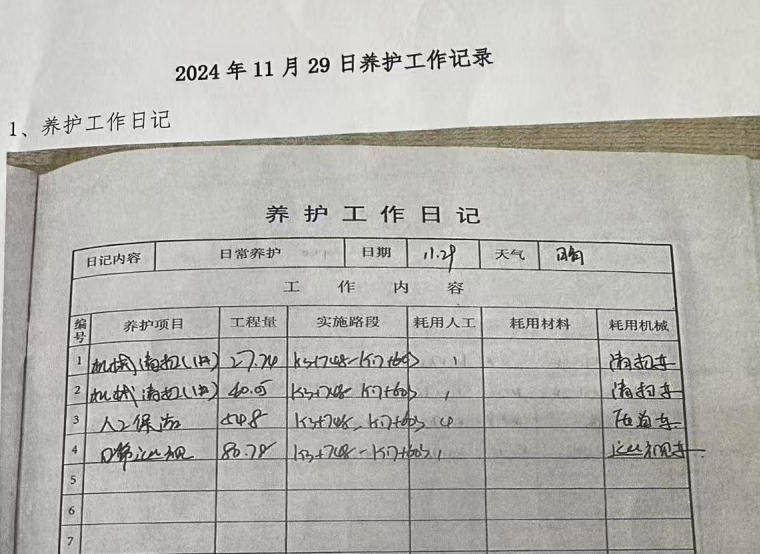 2024 年 11 月 29 日养护工作记录
1、养护工作日记
养 护 工 作 日 记
日记内容 日常养护 日期 11.29 天气 晴
工 作 内 容
编号 养护项目 工程量 实施路段 耗用人工 耗用材料 耗用机械
1 机械清扫 27.74 K3+748-K17+603 1 清扫车
2 机械清扫 K3+748-K17+603 1 清扫车
3 人工保洁 54.8 K3+748-K17+603 4
4 日常巡视 80.78 K3+748-K17+603 1 巡视车
5
6
7